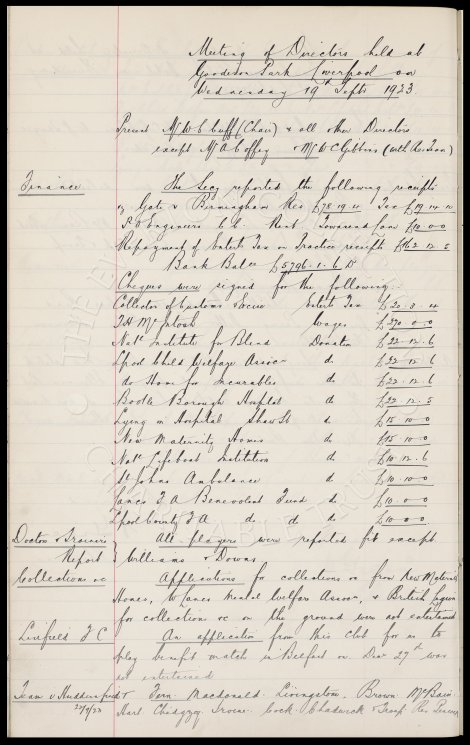 Meeting of Directors held at
Goodison Park Liverpool on
Wednesday 19th Septr 1923
Present Mr W C Cuff (Chair) & all other Directors
except Mr A Coffey & Mr W C Gibbins (with Res Team)
Finance
The Secy reported the following receipts
Gate v Birmingham Res £78.19.11 Tax £19.14.10
P O Engineers C.C. Rent Townsend Lane £10.0.0
Repayment of Entert Tax on Practice receipts £162.12.5
Bank Balce £5796.1.6 Dr
Cheques were signed for the following:
Collector of Customs & Excise Entert Tax £20.3.4
T H McIntosh Wages £270.0.0
Natl Institute for Blind Donation £22.12.6
Lpool Child Welfare Associn do £22.12.6
do Home for Incurables do £22.12.6
Bootle Borough Hospital do £22.12.5
Lying in Hospital Shaw St do £15.10.0
New Maternity Homes do £15.10.0
Natl Lifeboat Institution do £10.12.6
St Johns Ambulance do £10.10.0
Lancs F A Benevolent Fund do £10.0.0
Lpool County F A do do do £10.0.0
Doctor & Trainers
Report
All players were reported fit except
Williams & Downs
Collections &c
Applications for collections &c from New Maternity
Homes, W Lancs Mental Welfare Assocn, & British Legion
for collections &c on the ground were not entertained
Linfield F C
An application from this Club for us to
play benefit match in Belfast on Decr 27th was
not entertained
Team v Huddersfield
22/9/23
Fern Macdonald Livingstone Brown McBain
Hart Chedgzoy Irvine Cock Chadwick & Troup Res